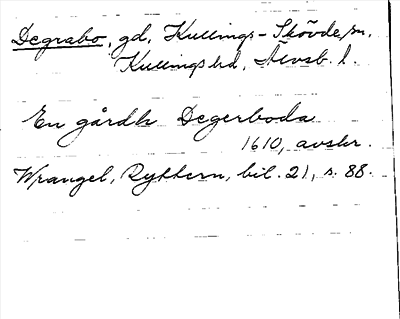 Degrabo, gd, Kullings-Skövde sn,
Kullings hd, Älvsb. l.
En gårdh Degerboda
1610, avskr.
Wrangel, Ryttern, bil. 21, s. 88.